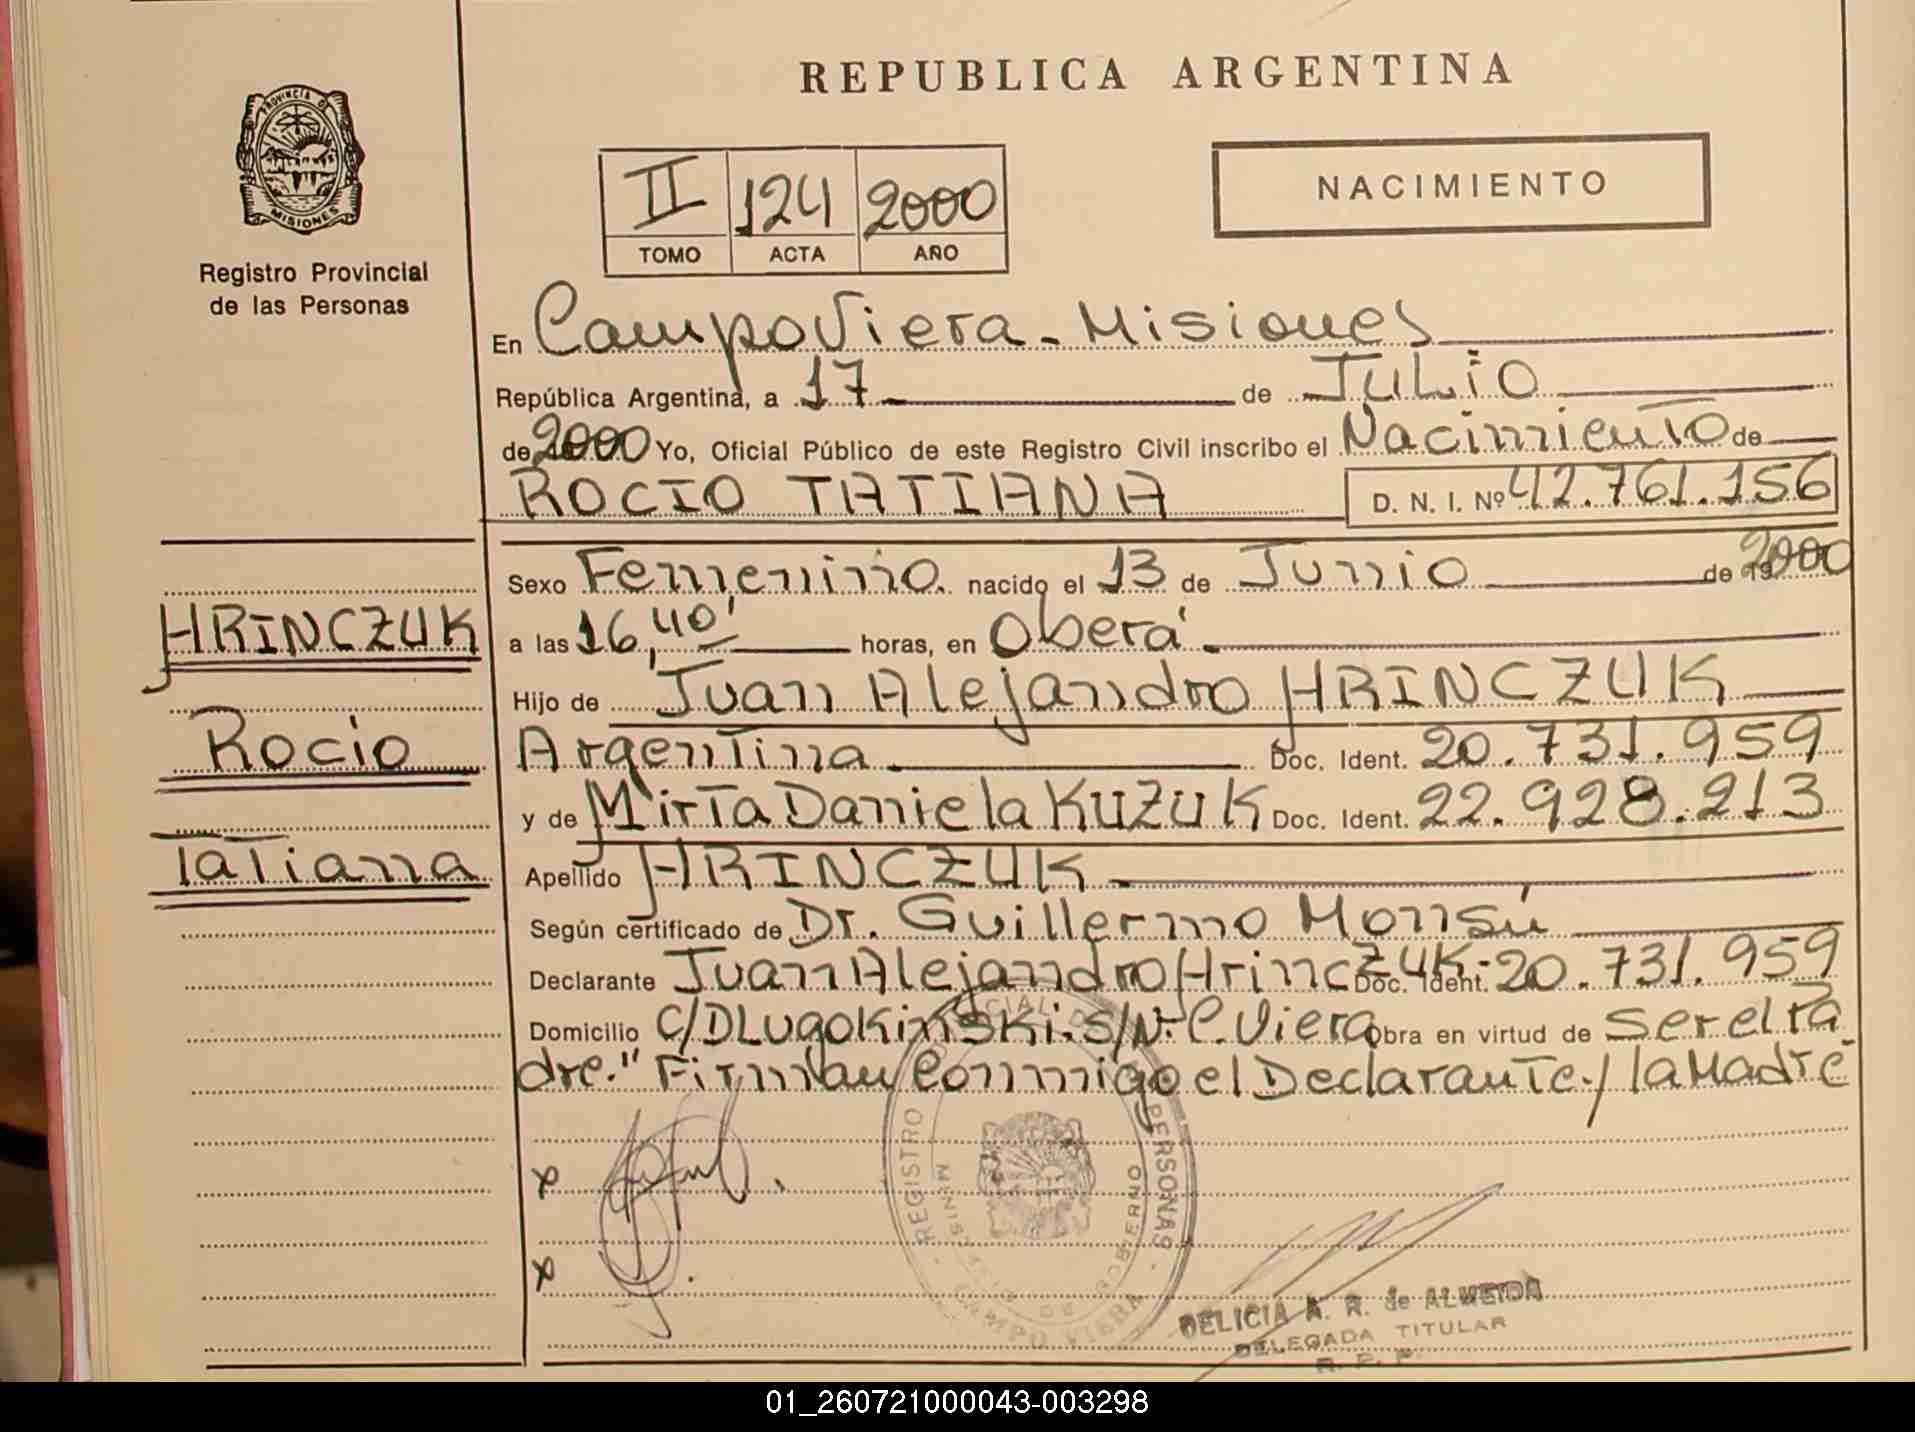 PROVINCIA DE
MISIONES
Registro Provincial
de las Personas
REPUBLICA ARGENTINA
II 124 2000
TOMO ACTA AÑO
NACIMIENTO
En Campo Viera - Misiones
República Argentina, a 17 de Julio
de 2000 Yo, Oficial Público de este Registro Civil inscribo el Nacimiento de
ROCIO TATIANA D. N. I. Nº 42.761.156
Sexo Femenino. nacido el 13 de Junio de 2000
a las 16,40' horas, en Oberá
Hijo de Juan Alejandro HRINCZUK
Argentina Doc. Ident. 20.731.959
y de Mirta Daniela KUZUK Doc. Ident. 22.928.213
Apellido HRINCZUK
Según certificado de Dr. Guillermo Monsú
Declarante Juan Alejandro Hrinczuk- Doc. Ident. 20.731.959
Domicilio C/DLugokinski. S/Nº C. Viera Obra en virtud de ser el Pa
dre." Firman Conmigo el Declarante./ la Madre
HRINCZUK
Rocio
Tatiana
x
x
REGISTRO PROVINCIAL DE LAS PERSONAS
MINISTERIO DE GOBIERNO
CAMPO VIERA
DELICIA A. R. de ALMEIDA
DELEGADA TITULAR
R. P. P.
01_260721000043-003298